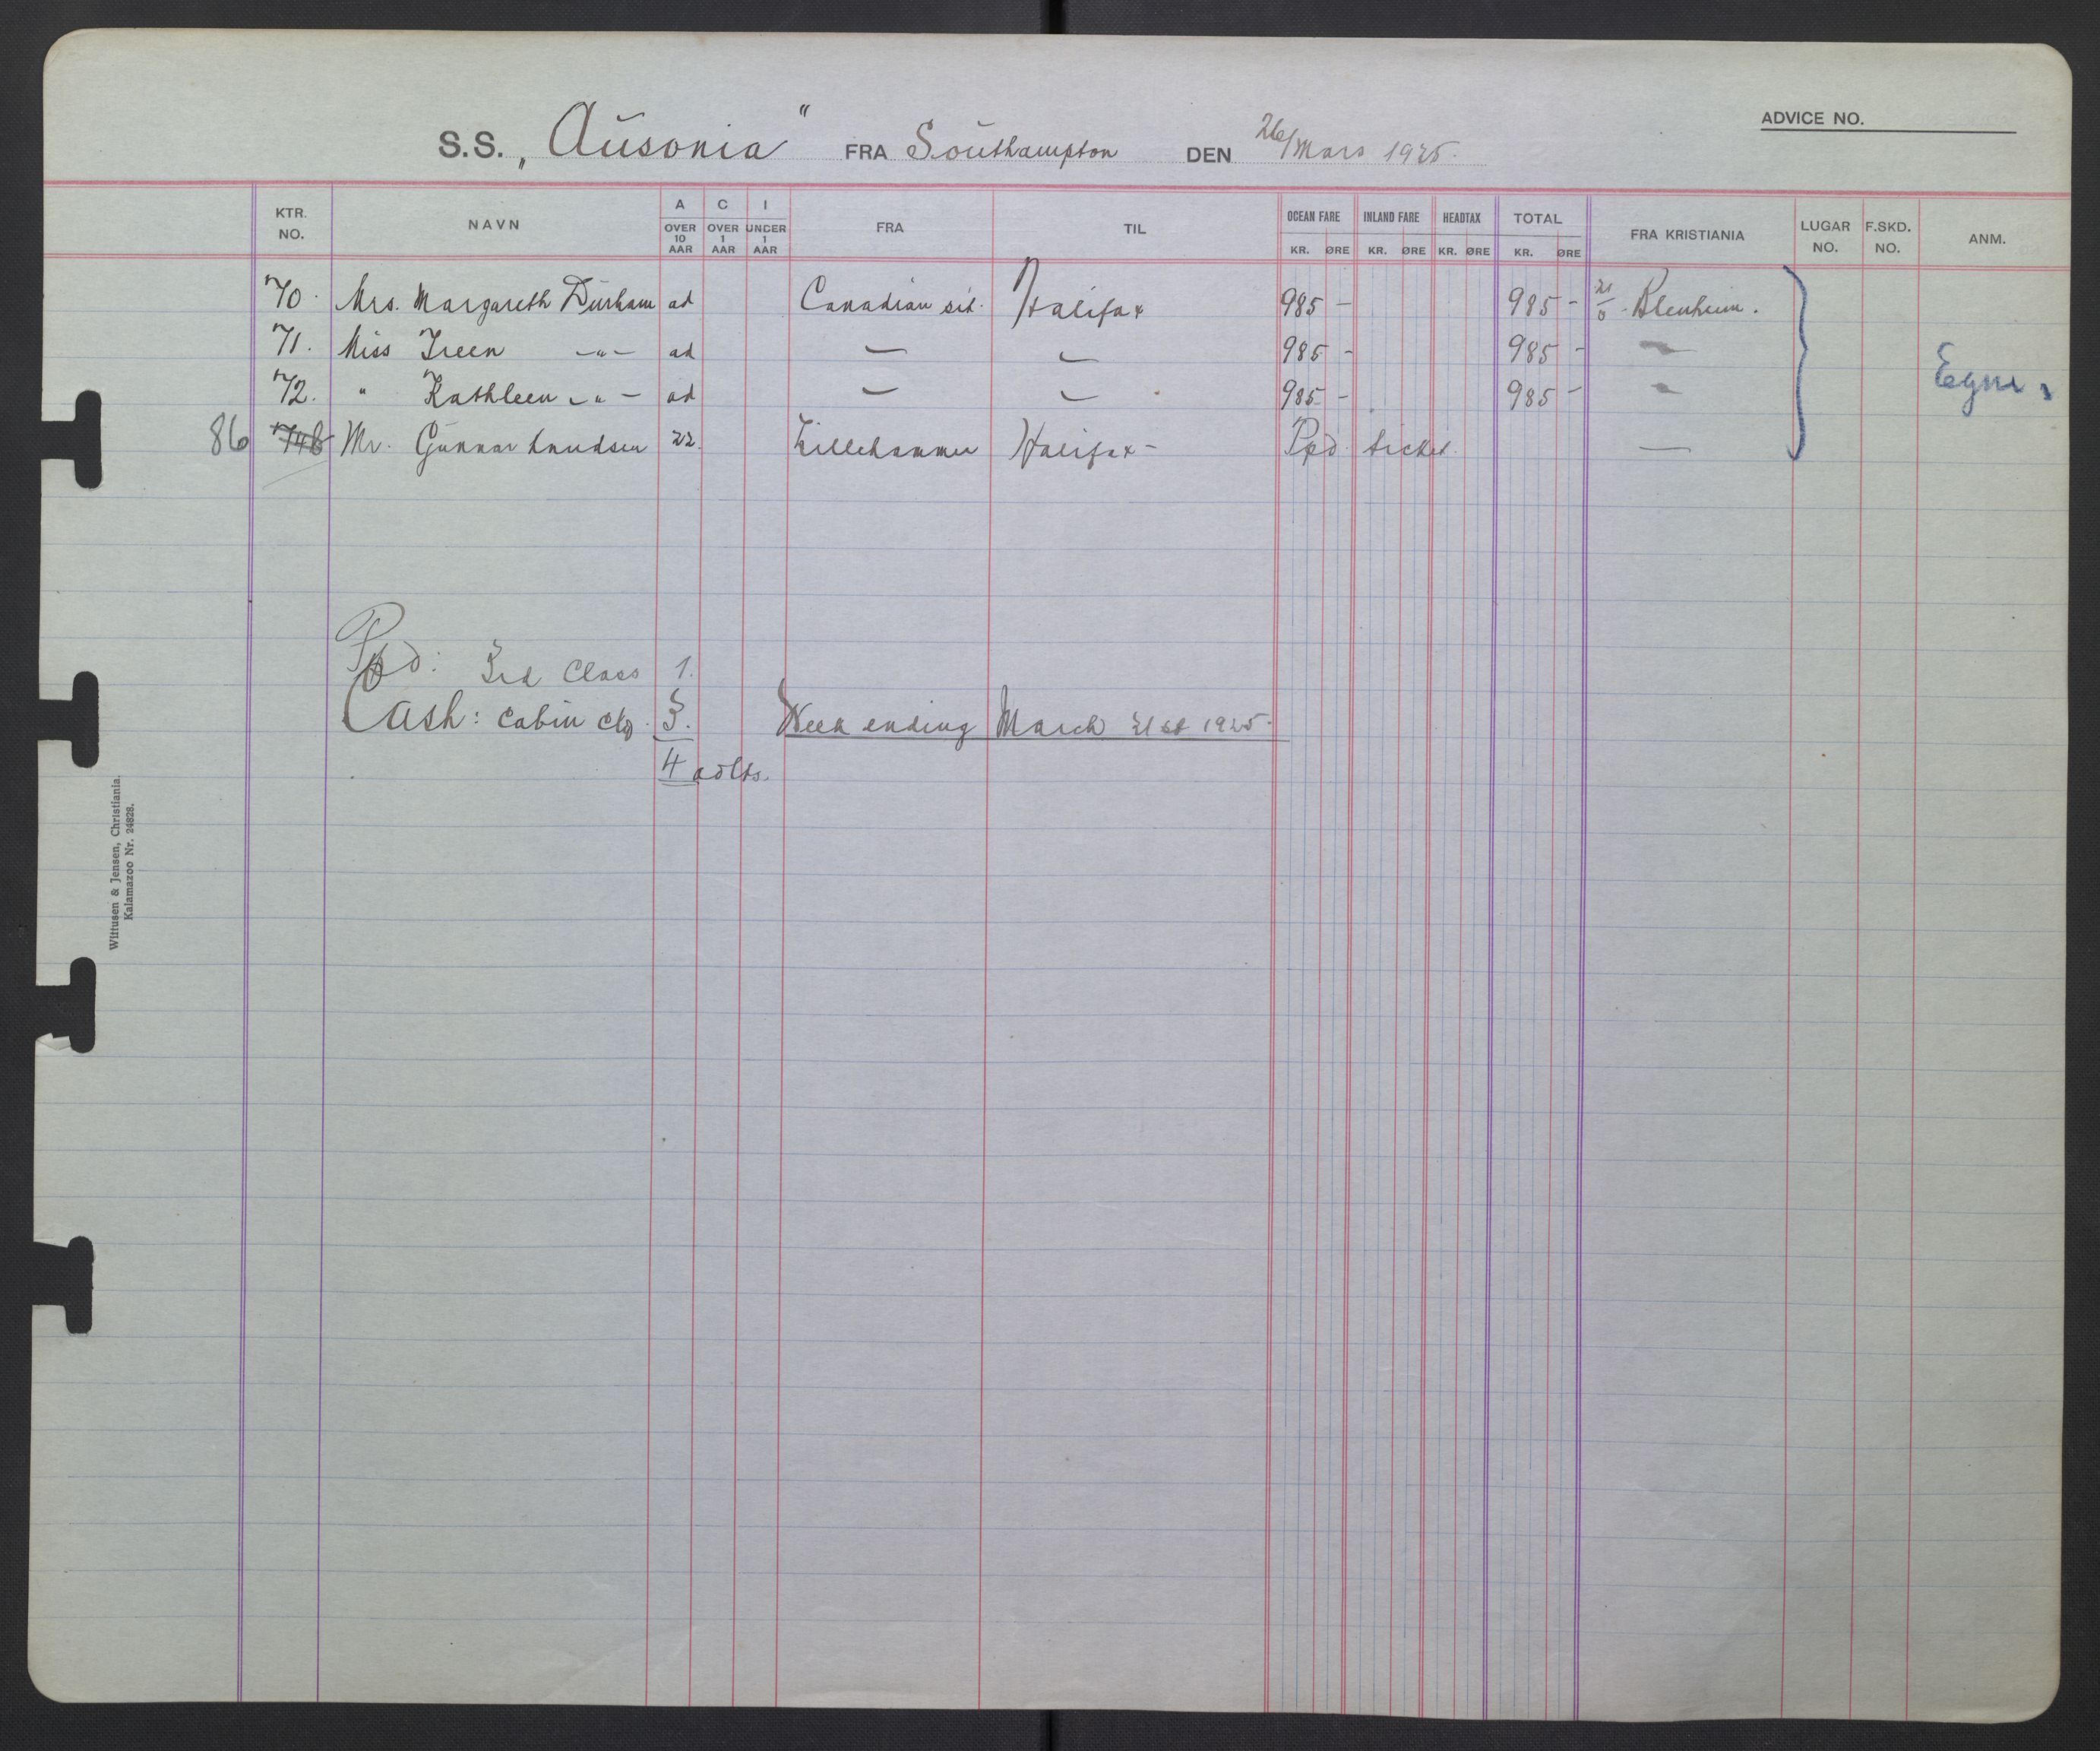 ADVICE NO.
S.S. „Ausonia" FRA Southampton DEN 26/Mars 1925.
KTR. NO. NAVN A OVER 10 AAR C OVER 1 AAR I UNDER 1 AAR FRA TIL OCEAN FARE KR. ØRE INLAND FARE KR. ØRE HEADTAX KR. ØRE TOTAL KR. ØRE FRA KRISTIANIA LUGAR NO. F.SKD. NO. ANM.
70. Mrs. Margareth Durham ad Canadian sit. Halifax 985 - 985 - Blenheim.
71. Miss Ireen -"- ad — — 985 - 985 - —
72. " Kathleen -"- ad — — 985 - 985 - —
Egne
86 Mr. Gunnar Knudsen 22. Lillehammer Halifax - Ppd. ticket. —
Ppd: 3rd Class 1.
Cash: Cabin Clas. 3. Week ending March 21st 1925.
4 adlts.
Wittusen & Jensen, Christiania.
Kalamazoo Nr. 24828.